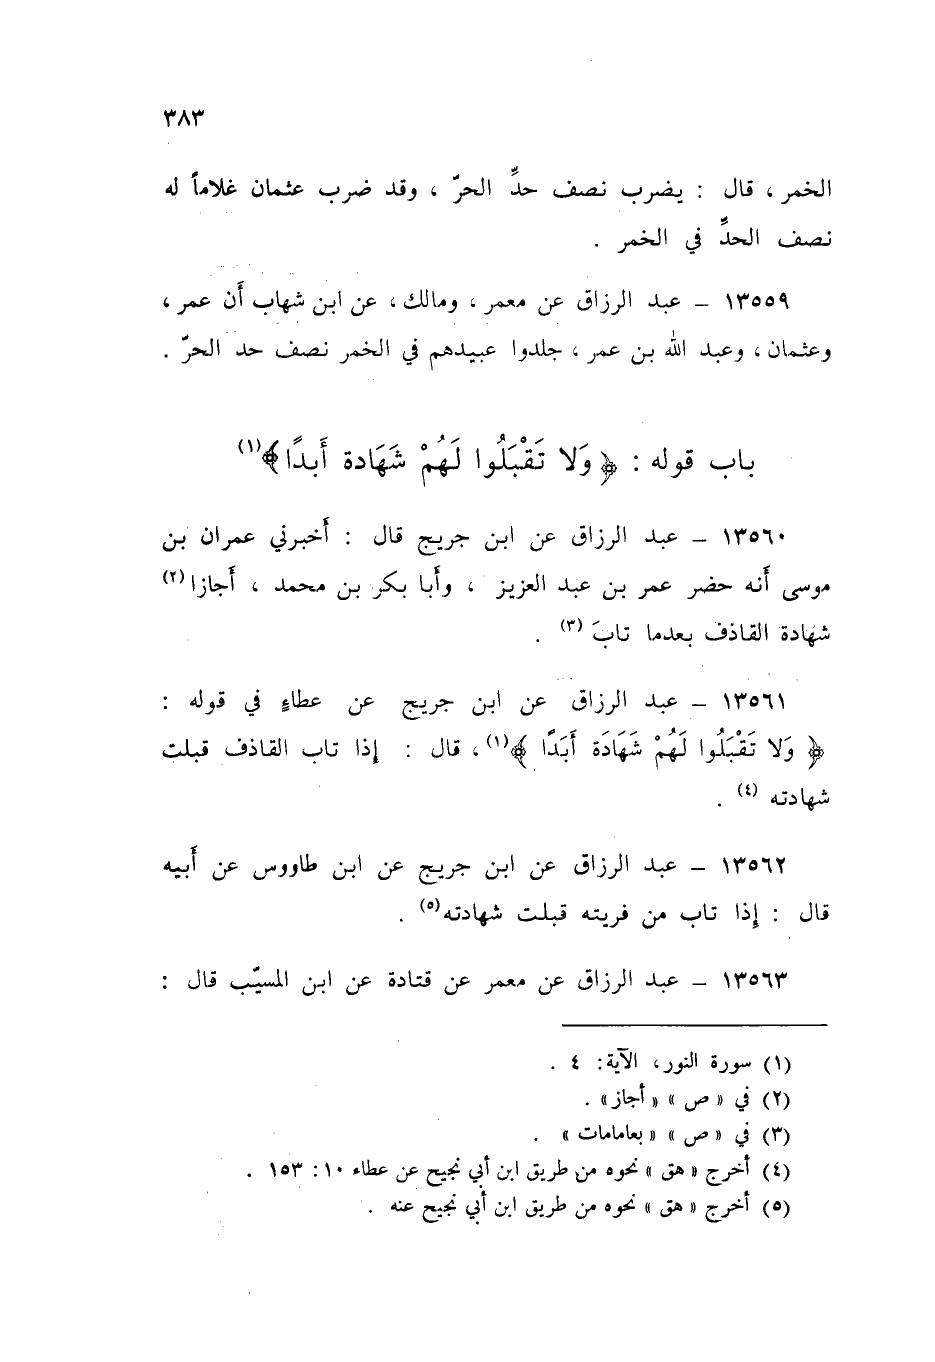 ٣٨٣
الخمر ، قال : يضرب نصف حدِّ الحرّ ، وقد ضرب عثمان غلاماً له
نصف الحدِّ في الخمر .
١٣٥٥٩ – عبد الرزاق عن معمر ، ومالك ، عن ابن شهاب أن عمر ،
وعثمان ، وعبد الله بن عمر ، جلدوا عبيدهم في الخمر نصف حد الحرّ .
باب قوله : ﴿ وَلا تَقْبَلُوا لَهُمْ شَهَادة أَبدًا ﴾(١)
١٣٥٦٠ – عبد الرزاق عن ابن جريج قال : أخبرني عمران بن
موسى أنه حضر عمر بن عبد العزيز ، وأبا بكر بن محمد ، أجازا(٢)
شهادة القاذف بعدما تابَ (٣) .
١٣٥٦١ – عبد الرزاق عن ابن جريج عن عطاءٍ في قوله :
﴿ وَلا تَقْبَلُوا لَهُمْ شَهَادَة أَبَدًا ﴾(١) ، قال : إذا تاب القاذف قبلت
شهادته (٤) .
١٣٥٦٢ – عبد الرزاق عن ابن جريج عن ابن طاووس عن أبيه
قال : إذا تاب من فريته قبلت شهادته(٥) .
١٣٥٦٣ – عبد الرزاق عن معمر عن قتادة عن ابن المسيّب قال :
(١) سورة النور ، الآية : ٤ .
(٢) في « ص » « أجاز » .
(٣) في « ص » « بعامامات » .
(٤) أخرج « هق » نحوه من طريق ابن أبي نجيح عن عطاء ١٠ : ١٥٣ .
(٥) أخرج « هق » نحوه من طريق ابن أبي نجيح عنه .